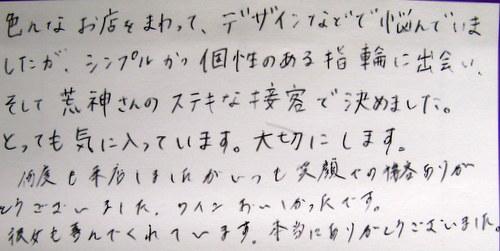 色んなお店をまわって、デザインなどで悩んでいま
したが、シンプルかつ個性のある指輪に出会い、
そして荒神さんのステキな接客で決めました。
とっても気に入っています。大切にします。
何度も来店しましたがいつも笑顔での接客ありが
とうございました。ワインおいしかったです。
彼女も喜んでくれています。本当にありがとうございました